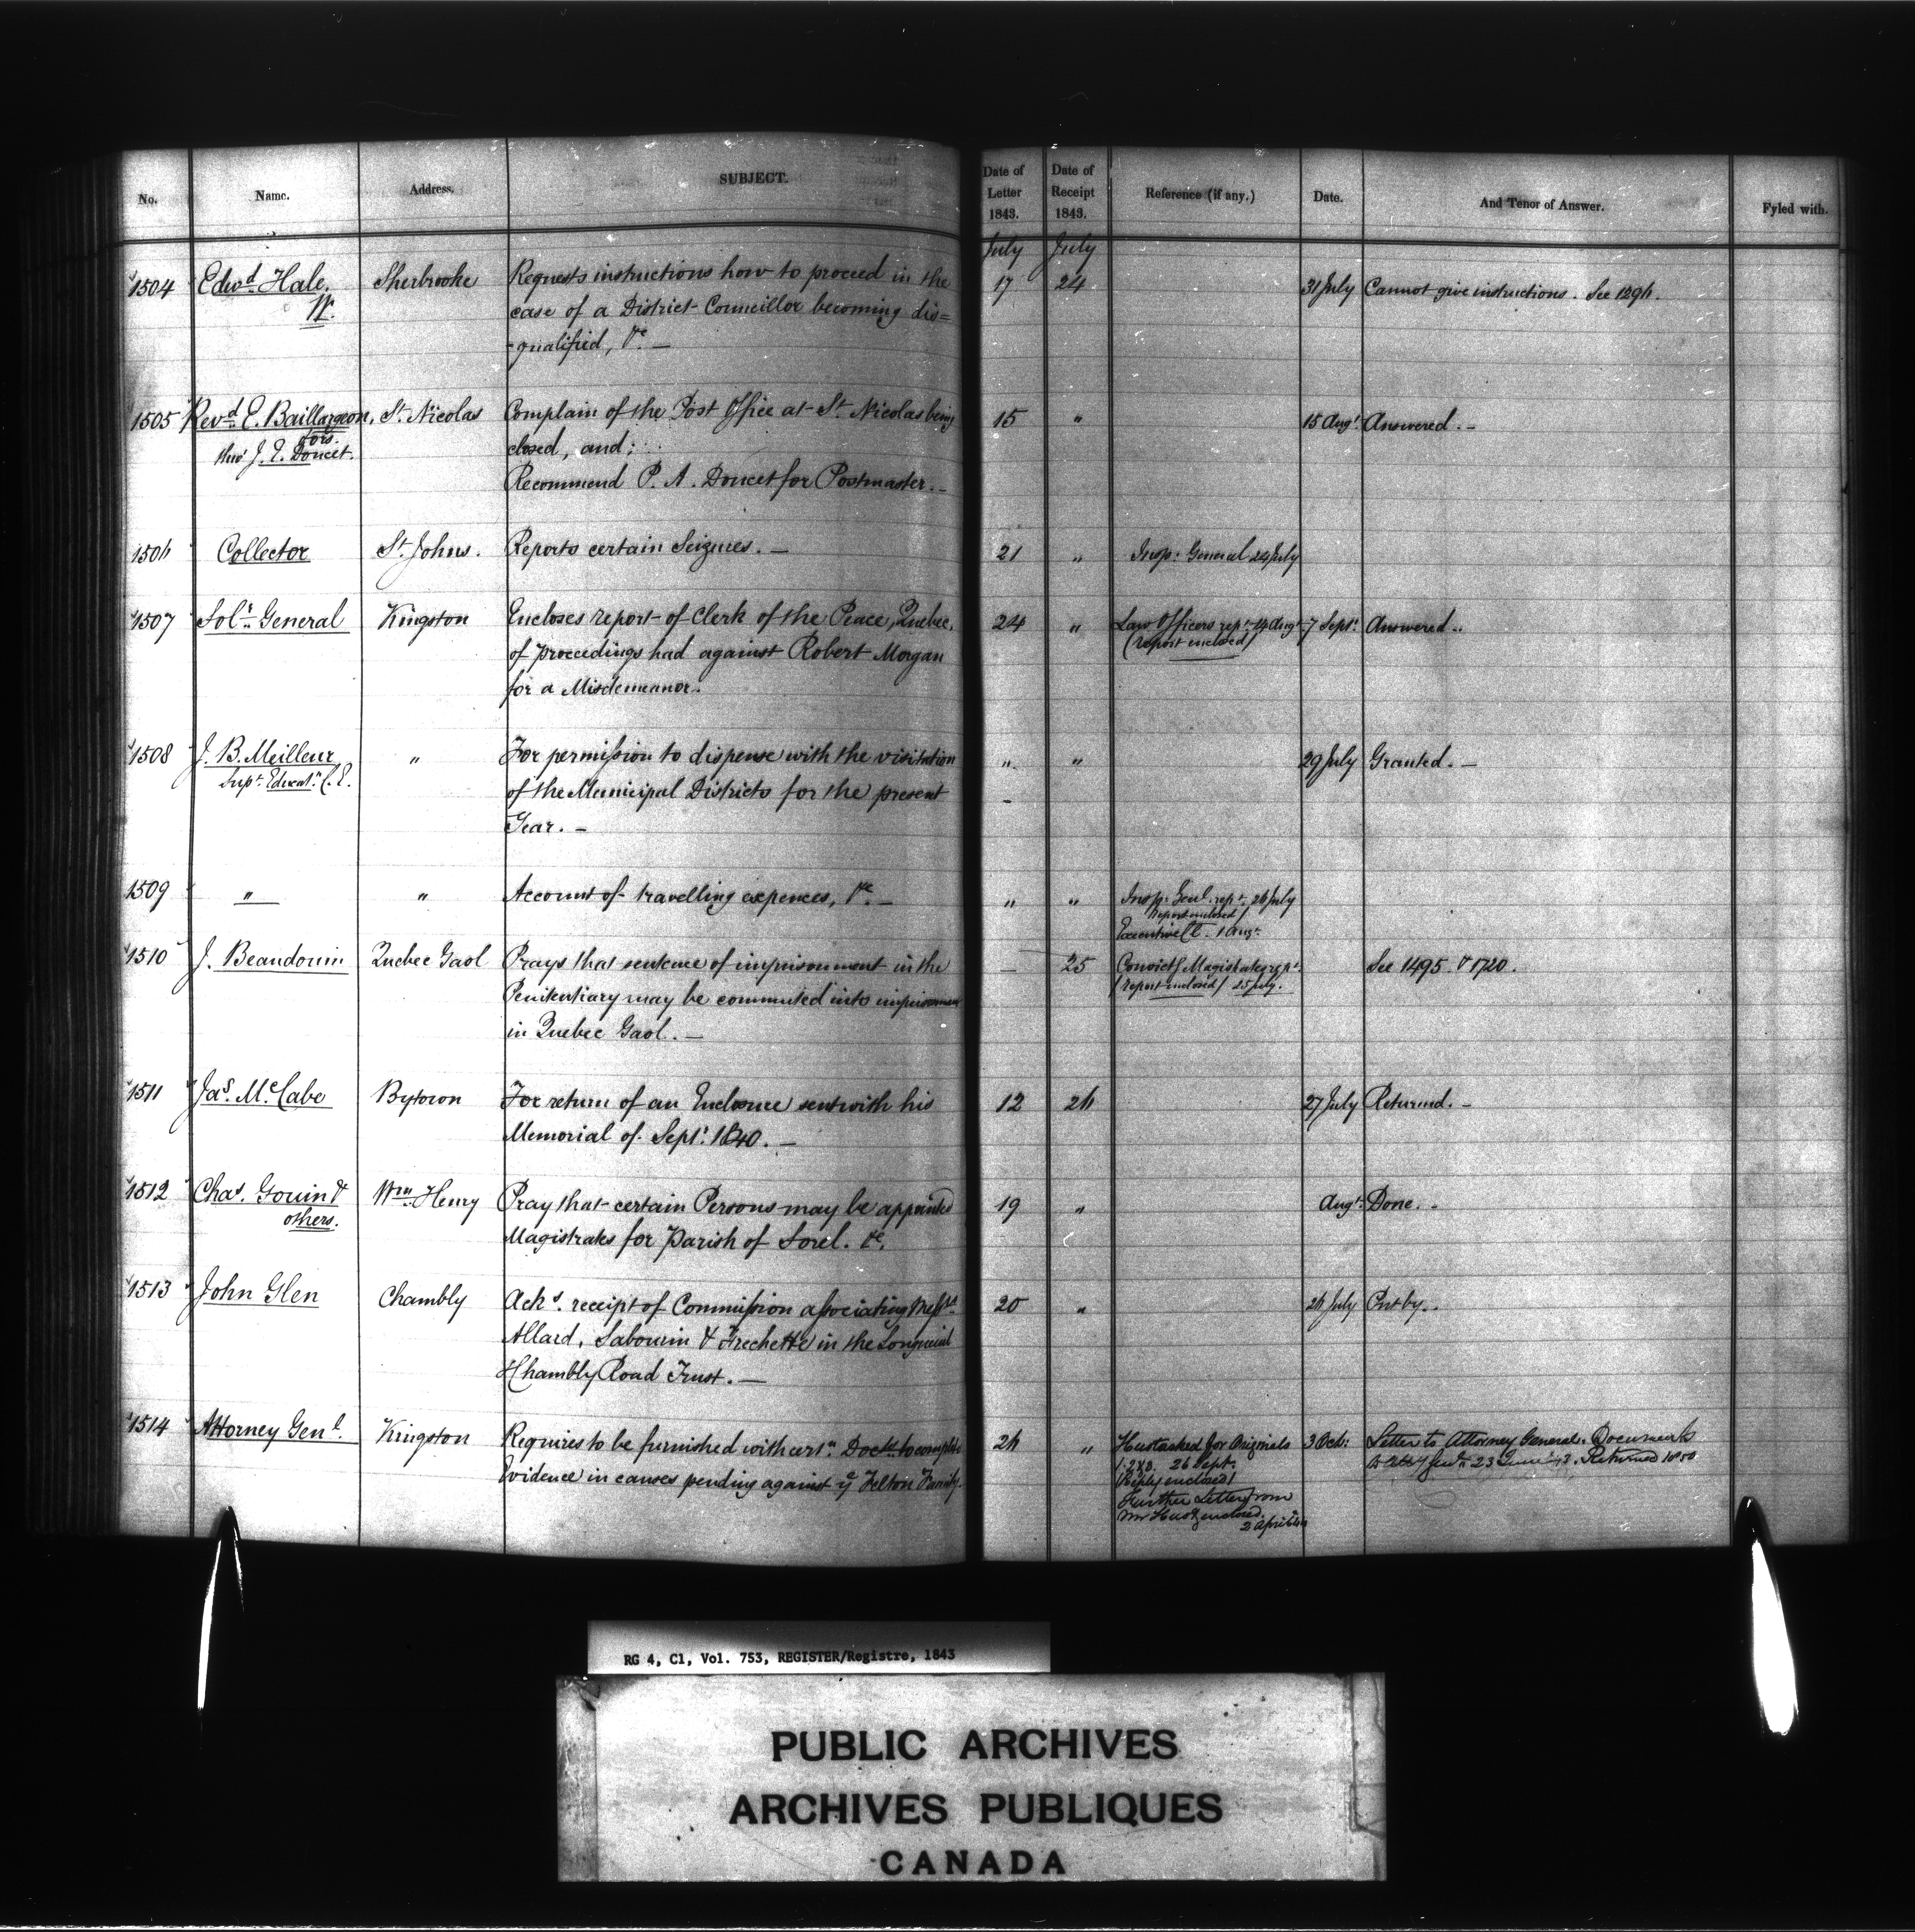 No. Name. Address. SUBJECT. Date of Letter 1843. Date of Receipt 1843. Reference (if any.) Date. And Tenor of Answer. Fyled with.
July July
1504 Edwd Hale. Sherbrooke Requests instructions how to proceed in the 17 24 31 July Cannot give instructions. See 1296.
W. case of a District Councillor becoming dis=
-qualified, &c. —
1505 Revd E. Baillargeon, St. Nicolas Complain of the Post Office at St. Nicolas being 15 " 15 Augt. Answered. -
& ors.
thro' J. E. Doucet. closed, and;
Recommend P. A. Doucet for Postmaster. -
1506 Collector St. Johns. Reports certain Seizures. — 21 " Insp: General 24 July
1507 Solr. General Kingston Encloses report of Clerk of the Peace, Quebec, 24 " Law Officers rept. 14 Augt. 7 Septr. Answered..
(report enclosed)
of proceedings had against Robert Morgan
for a Misdemeanor.
1508 J. B. Meilleur " For permission to dispense with the visitation " " 29 July Granted. —
Supt. Educatn. C. E.
of the Municipal Districts for the present
Year. —
1509 " " Account of travelling expences, &c. — " " Insp: Genl. rept. 26 July
(report enclosed)
Executive Cl. 1 Augt.
1510 J. Beaudouin Quebec Gaol Prays that sentence of imprisonment in the — 25 Convictg Magistrates rept. See 1495. & 1720.
(report enclosed) 25 July.
Penitentiary may be commuted into imprisonment
in Quebec Gaol. —
1511 Jas. McCabe Bytown For return of an Enclosure sent with his 12 26 27 July Returned. —
Memorial of Septr. 1840. —
1512 Chas. Gouin & Wm. Henry Pray that certain Persons may be appointed 19 " Augt. Done. -
others.
Magistrates for Parish of Sorel. &c.
1513 John Glen Chambly Acks. receipt of Commission associating Messrs 20 " 26 July Put by..
Allard, Sabourin & Frechette in the Longueuil
& Chambly Road Trust. —
1514 Attorney Genl. Kingston Requires to be furnished with certn. Docts. to complete 26 " asked for Originals 3 Oct: Letter to Attorney General. Documents
26 Sept.
Evidence in causes pending against ye Felton Family.
(Reply enclosed) 23 June Returned 1850
Further Letter from
Mr enclosed.
2 April
RG 4, C1, Vol. 753, REGISTER/Registre, 1843
PUBLIC ARCHIVES
ARCHIVES PUBLIQUES
CANADA